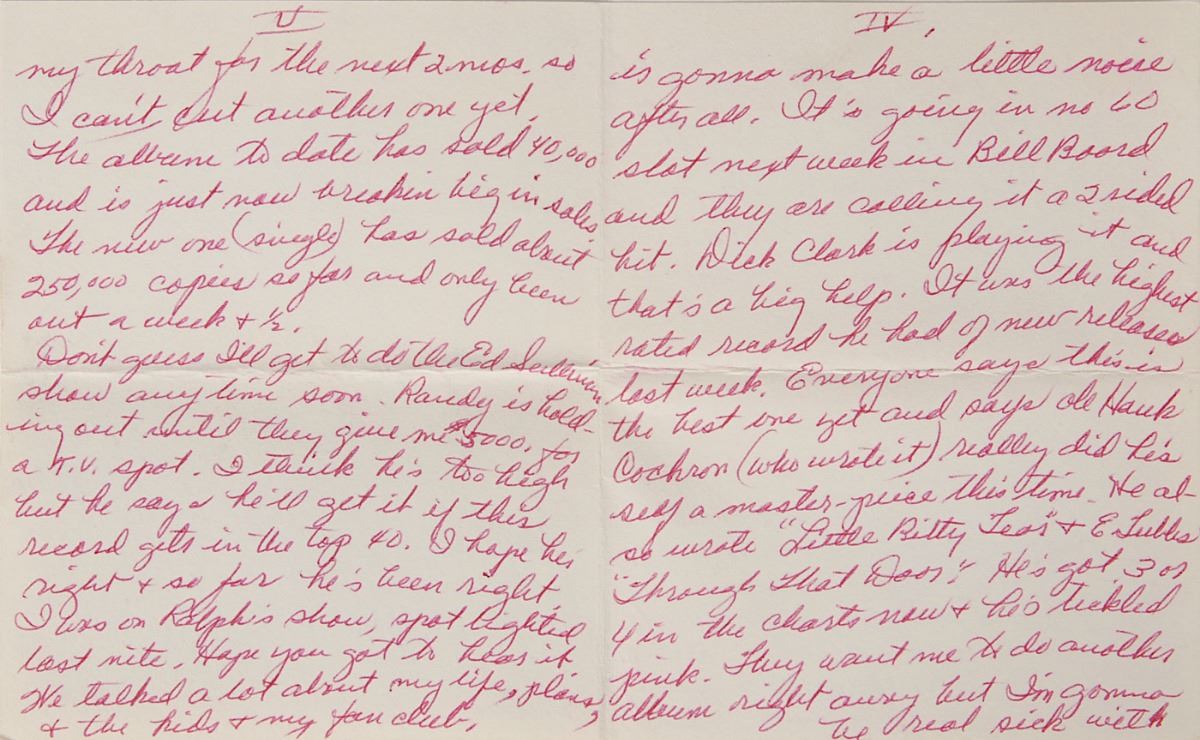 IV.
is gonna make a little noise
after all. It's going in no 60
slot next week in Bill Board
and they are calling it a 2 sided
hit. Dick Clark is playing it and
that's a big help. It was the highest
rated record he had of new releases
last week. Everyone says this is
the best one yet and says ole Hank
Cochron (who wrote it) realley did his
self a master-piece this time. He al-
so wrote "Little Bitty Tear" & E. Tubbs
"Through That Door". He's got 3 or
4 in the charts now & he's tickled
pink. They want me to do another
album right away but I'm gonna
be real sick with
V
my throat for the next 2 mos. so
I can't cut another one yet.
The album to date has sold 40,000
and is just now breakin big in sales.
The new one (single) has sold about
250,000 copies so far and only been
out a week & ½.
Don't guess I'll get to do the Ed Sullivan
show any time soon. Randy is hold-
ing out until they give me $5000. for
a T.V. spot. I think he's too high
but he says he'll get it if this
record gets in the top 40. I hope he's
right & so far he's been right.
I was on Ralph's show, spot lighted
last nite. Hope you got to hear it
We talked a lot about my life, plans,
& the kids & my fan club.